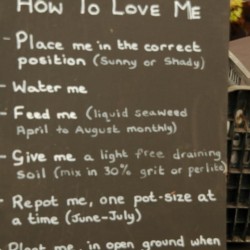 HOW TO LOVE ME
- Place me in the correct
position (Sunny or Shady)
- Water me
- Feed me (liquid seaweed
April to August monthly)
- Give me a light free draining
Soil (mix in 30% grit or perlite)
- Repot me, one pot-size at
a time (June-July)
- Plant me, in open ground when